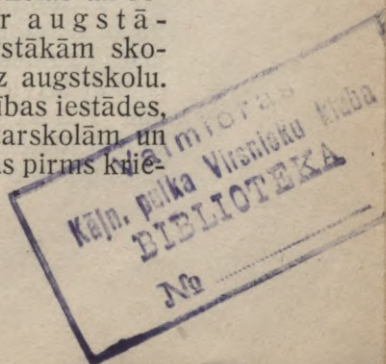 r augstā-
stākām sko-
z augstskolu.
ības iestādes,
tarskolām un
as pirms krie-
Valmieras
Kājn. pulka Virsnieku kluba
BIBLIOTEKA
№